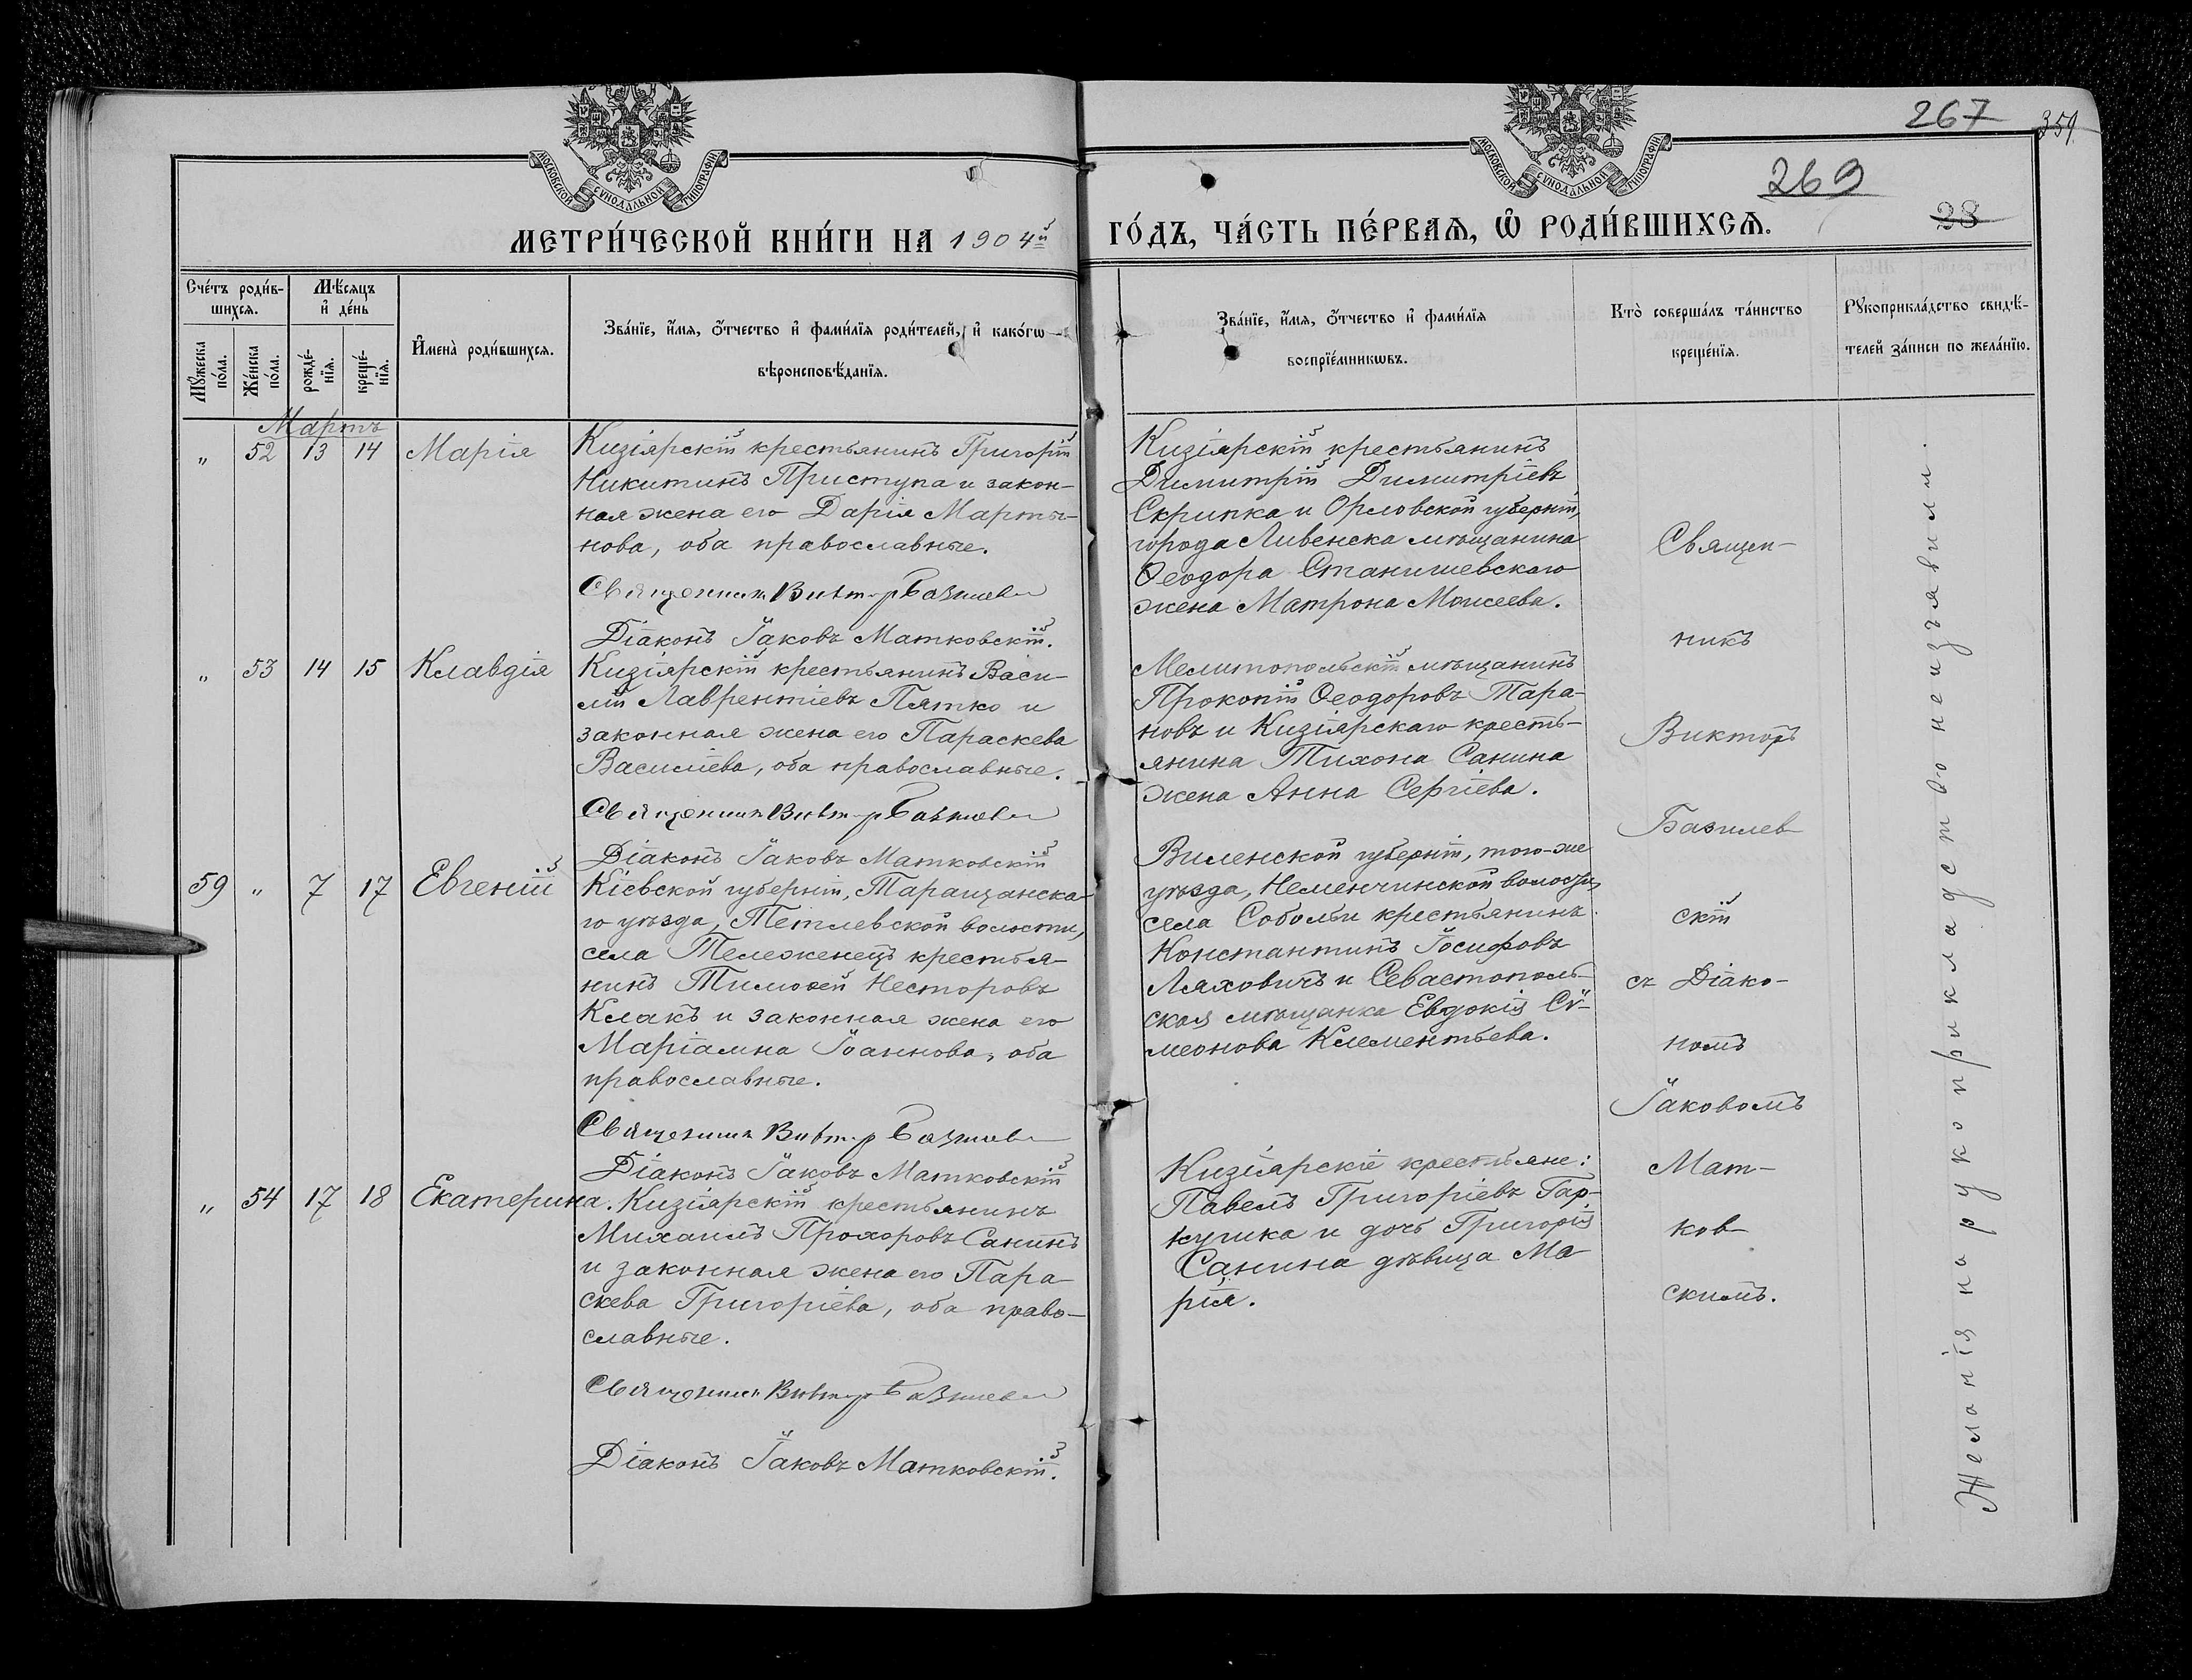 267
359
269
38
МОСКОВСКОЙ СѴНОДАЛЬНОЙ ТИПОГРАФІИ.
МОСКОВСКОЙ СѴНОДАЛЬНОЙ ТИПОГРАФІИ.
МЕТРИ́ЧЕСКОЙ КНИ́ГИ НА 1904й
ГО́ДЪ, ЧА́СТЬ ПЕ́РВАѦ, Ѡ҆ РОДИ́ВШИХСѦ.
Сче́тъ роди́в-
шихсѧ.
Мꙋ́жеска по́ла.
Же́нска по́ла.
Мѣ́сѧцъ
и҆ де́нь
рожде́-
нїѧ.
креще́-
нїѧ.
И҆мена̀ роди́вшихсѧ.
Зва́нїе, и҆́мѧ, ѻ҆́тчество и҆ фами́лїѧ роди́телей, и҆ како́гѡ
вѣроисповѣ́данїѧ.
Зва́нїе, и҆́мѧ, ѻ҆́тчество и҆ фами́лїѧ
воспрїе́мникѡвъ.
Кто̀ соверша́лъ та́инство
креще́нїѧ.
Рꙋкоприкла́дство свидѣ́-
телей за́писи по жела́нїю.
Мартъ
" 52 13 14 Марія
Кизіярскій крестьянинъ Григорій
Никитинъ Приступа и закон-
ная жена его Дарія Марты-
нова, оба православные.
Священникъ Викторъ Базилев
Діаконъ Іаковъ Матковскій.
Кизіярскій крестьянинъ
Димитрій Димитріевъ
Скрипка и Орловской губерніи,
города Ливенска мѣщанина
Ѳеодора Станишевскаго
жена Матрона Моисеева.
" 53 14 15 Клавдія
Кизіярскій крестьянинъ Васи-
лій Лаврентіевъ Пятко и
законная жена его Параскева
Василіева, оба православные.
Священникъ Викторъ Базилев
Діаконъ Іаковъ Матковскій
Мелитопольскій мѣщанинъ
Прокопій Ѳеодоровъ Тара-
новъ и Кизіярскаго кресть-
янина Тихона Санина
жена Анна Сергіева.
59 " 7 17 Евгеній
Кіевской губерніи, Таращанска-
го уѣзда, Тетіевской волости,
села Тележенецъ крестья-
нинъ Тимоѳей Несторовъ
Клакъ и законная жена его
Маріамна Іоаннова, оба
православные.
Священникъ Викторъ Базилев
Діаконъ Іаковъ Матковскій
Виленской губерніи, того-же
уѣзда, Неменчинской волости,
села Собольи крестьянинъ
Константинъ Іосифовъ
Ляховичъ и Севастополь-
ская мѣщанка Евдокія Сѵ-
меонова Клементьева.
" 54 17 18 Екатерина.
Кизіярскій крестьянинъ
Михаилъ Прохоровъ Санинъ
и законная жена его Пара-
скева Григоріева, оба право-
славные.
Священникъ Викторъ Базилев
Діаконъ Іаковъ Матковскій.
Кизіярскіе крестьяне:
Павелъ Григоріевъ Гар-
кушка и дочь Григорія
Санина дѣвица Ма
рія.
Священ-
никъ
Викторъ
Базилев-
скій
съ Діако-
номъ
Іаковомъ
Мат-
ков-
скимъ.
Желанія на рукоприкладство не изъявили.